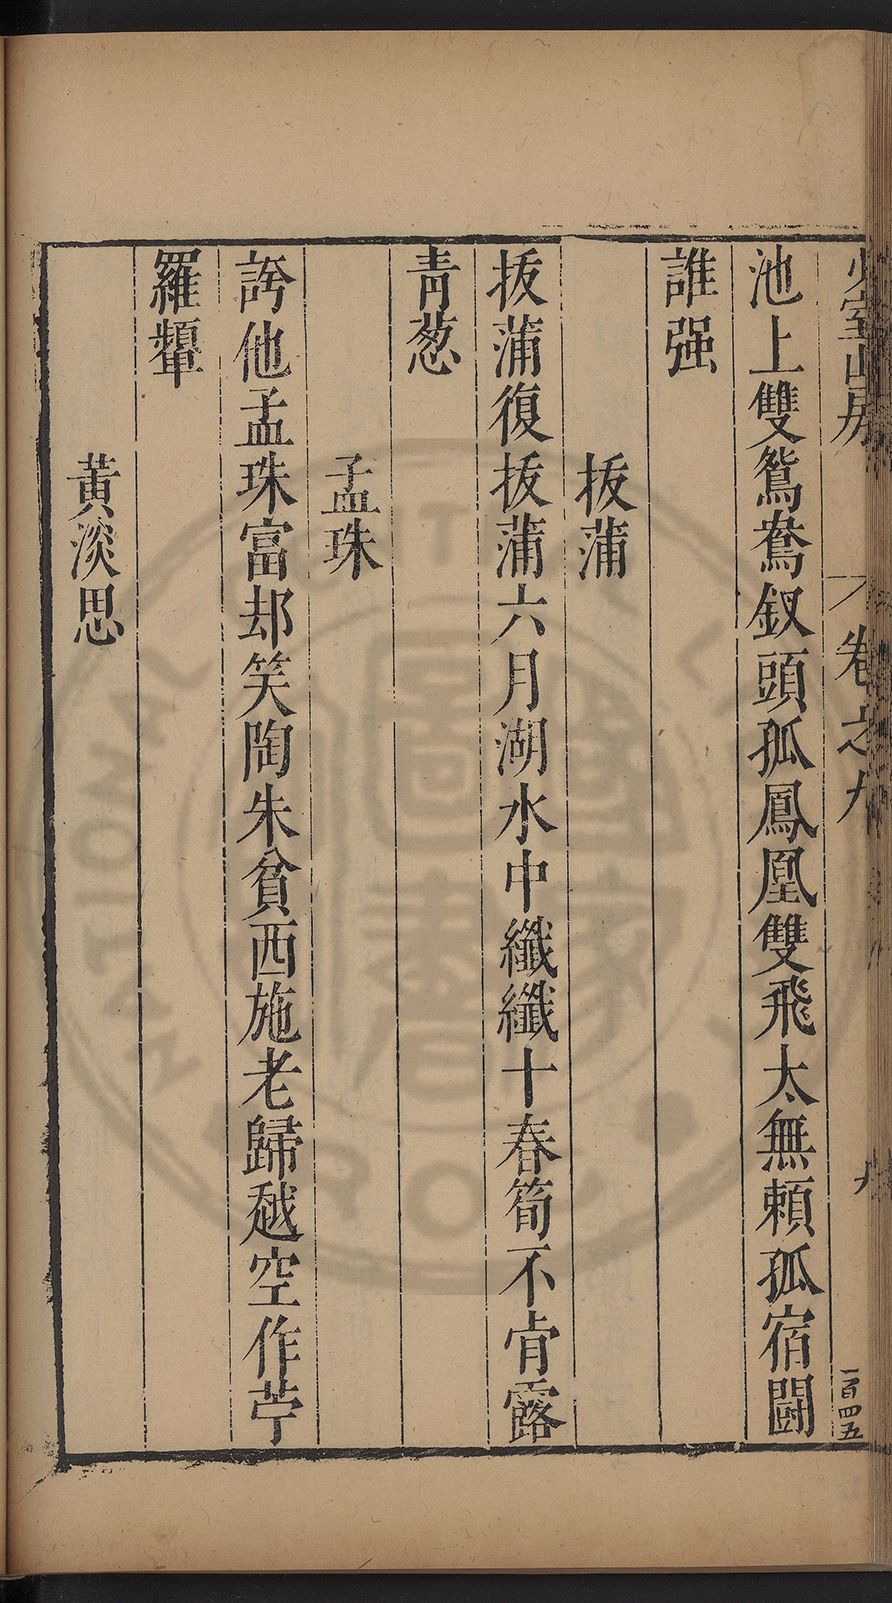 少室山房 卷之九 九 一百四五
池上雙鴛鴦釵頭孤鳳凰雙飛太無賴孤宿鬪
誰强
拔蒲
拔蒲復拔蒲六月湖水中纖纖十春筍不肯露
青葱
孟珠
誇他孟珠富却笑陶朱貧西施老歸越空作苧
羅顰
黃淡思